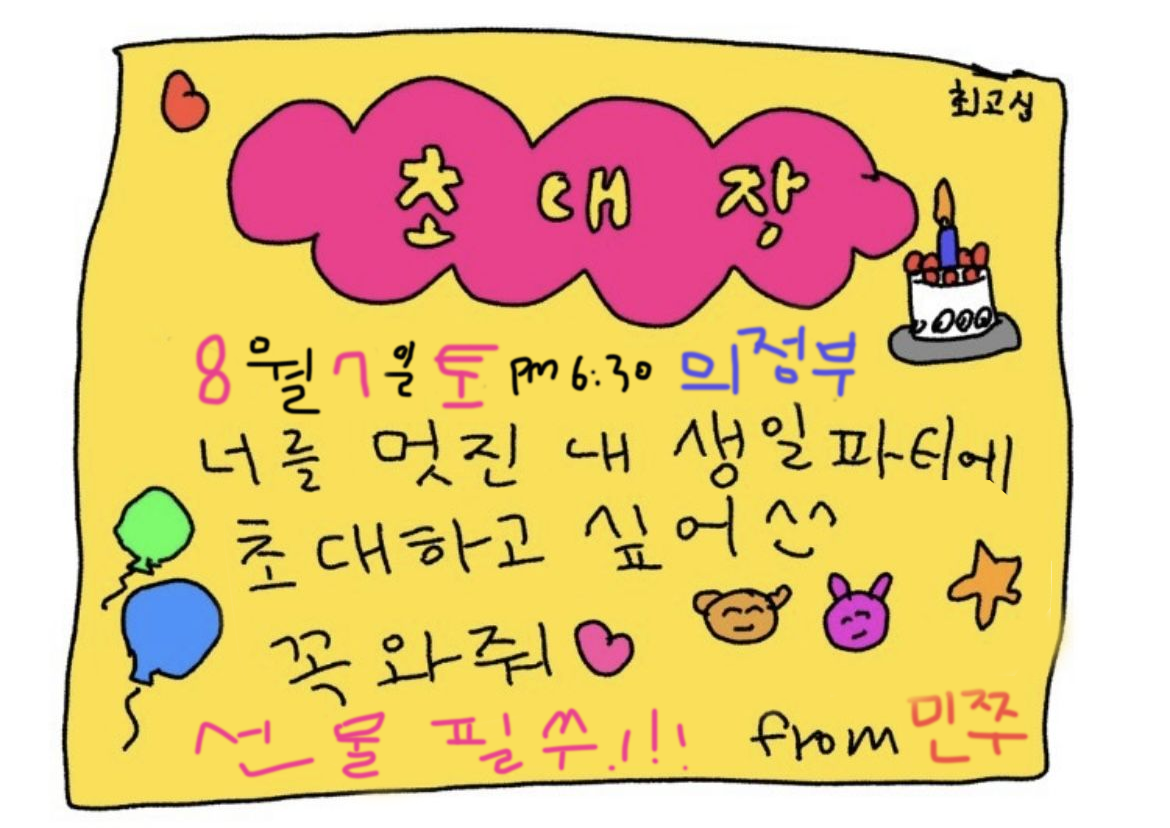 최고심
초대장
8월 7일 토 pm 6:30 의정부
너를 멋진 내 생일파티에
초대하고 싶어 ^^
꼭 와줘
선물 필쑤!!! from 민쭈